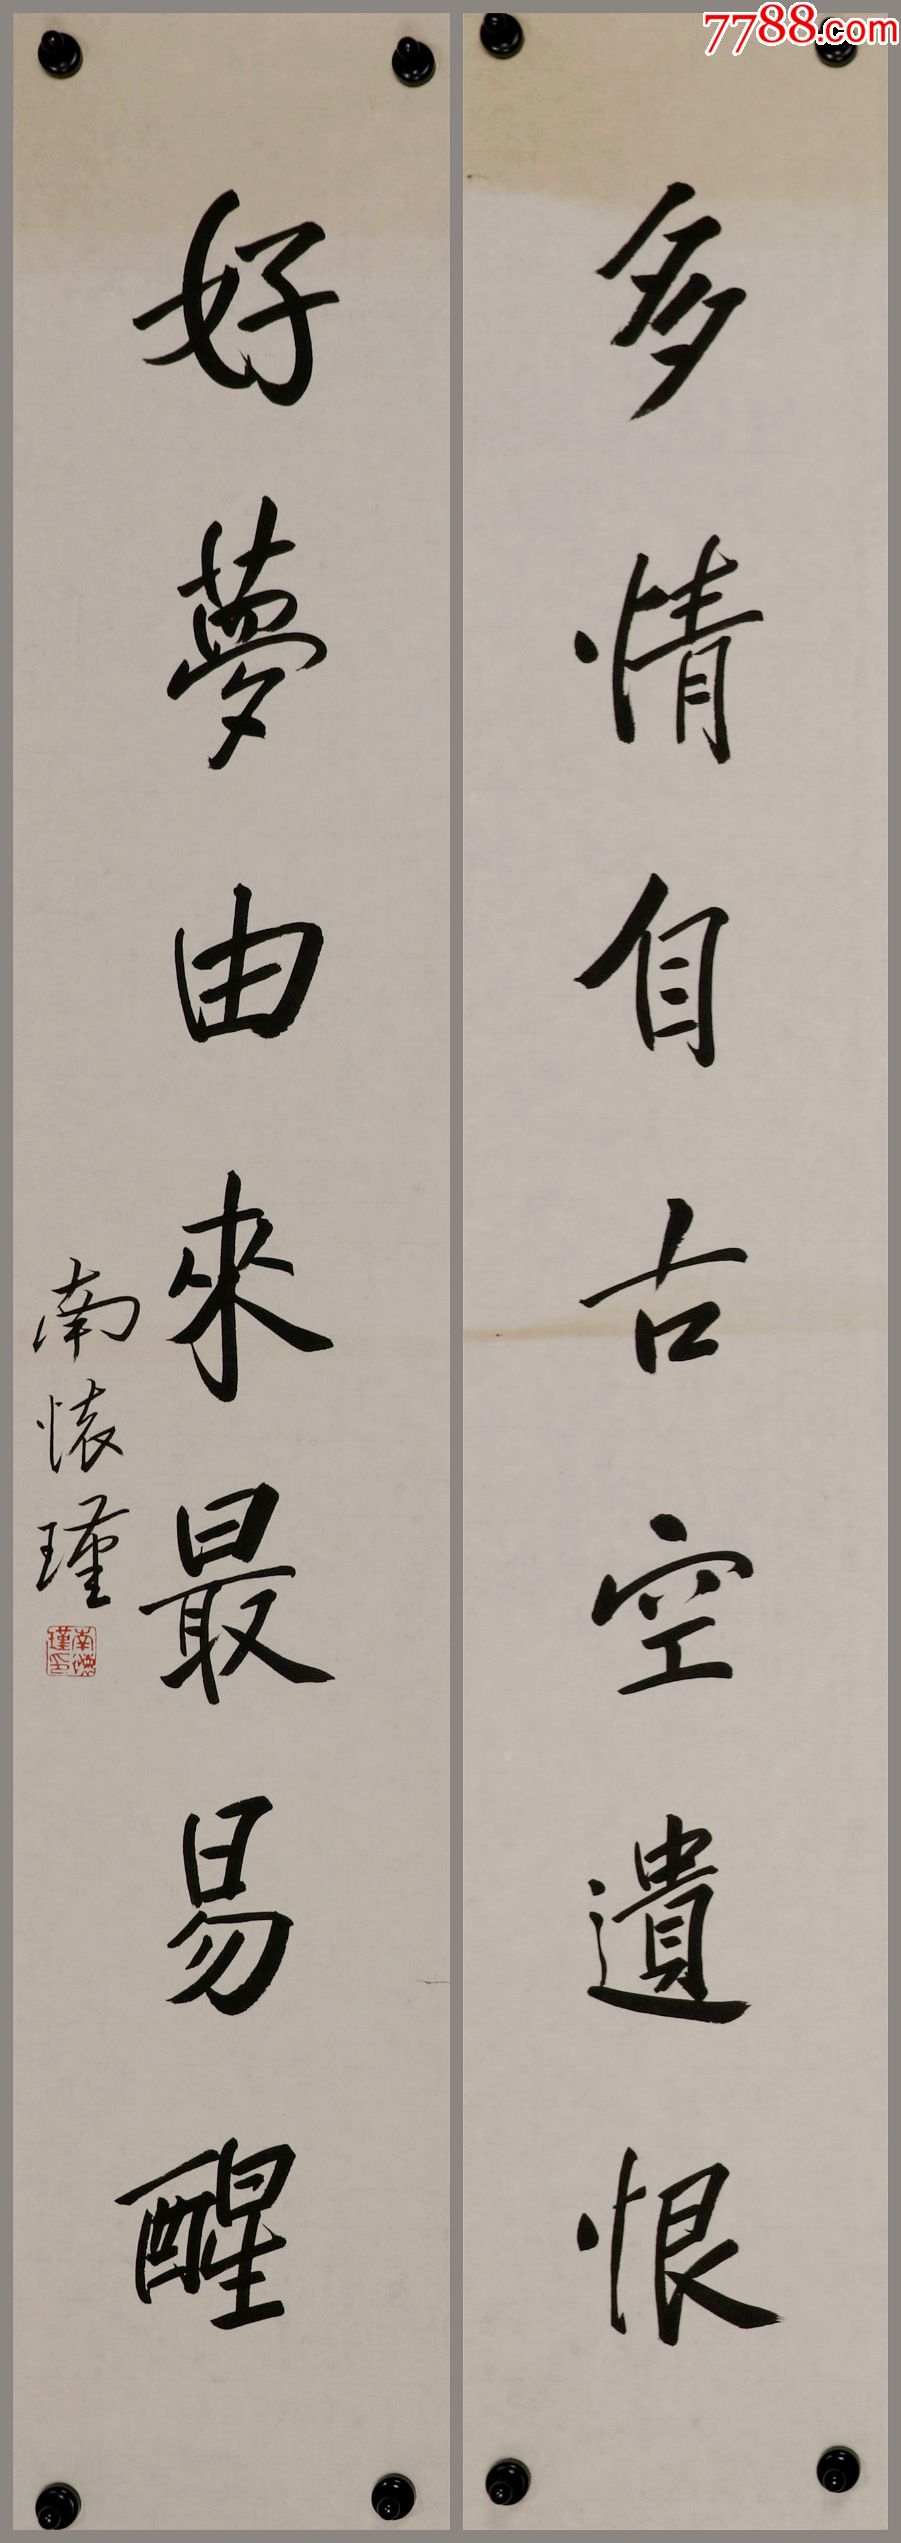 7788.com
多情自古空遺恨
好夢由來最易醒
南懷瑾
南懷瑾印